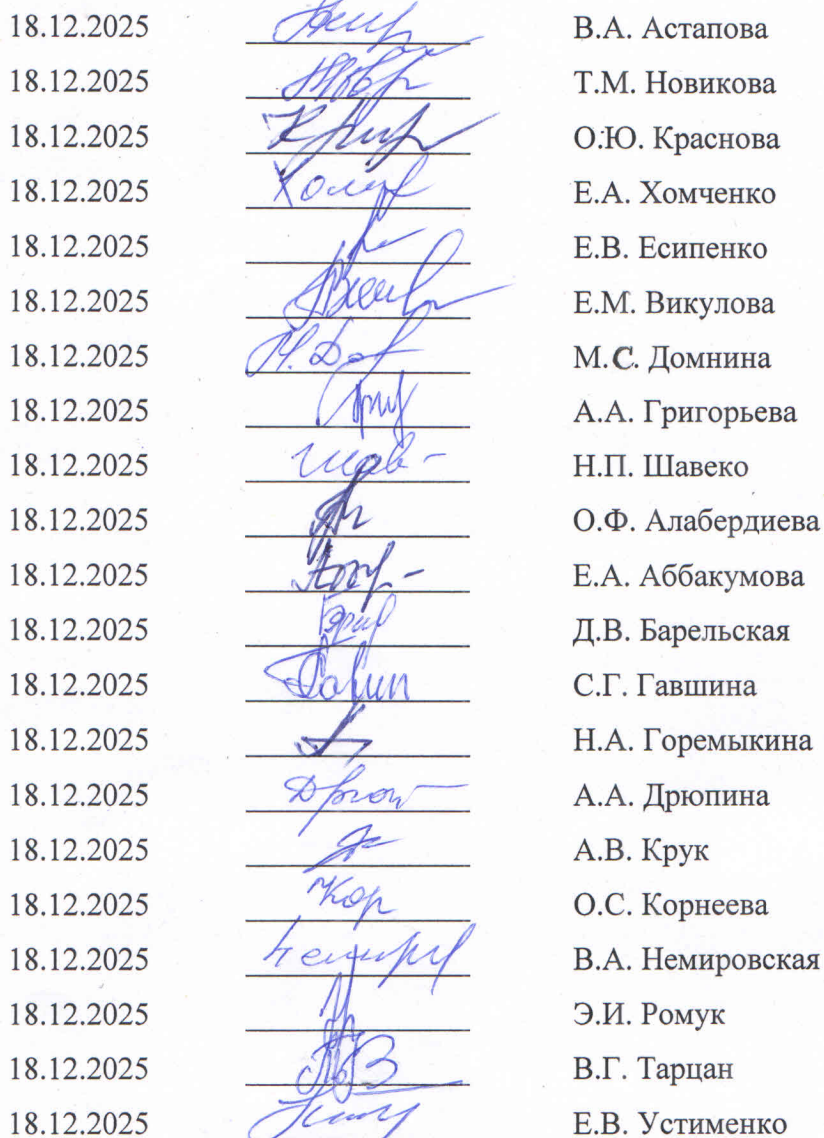 18.12.2025 В.А. Астапова
18.12.2025 Т.М. Новикова
18.12.2025 О.Ю. Краснова
18.12.2025 Е.А. Хомченко
18.12.2025 Е.В. Есипенко
18.12.2025 Е.М. Викулова
18.12.2025 М.С. Домнина
18.12.2025 А.А. Григорьева
18.12.2025 Н.П. Шавеко
18.12.2025 О.Ф. Алабердиева
18.12.2025 Е.А. Аббакумова
18.12.2025 Д.В. Барельская
18.12.2025 С.Г. Гавшина
18.12.2025 Н.А. Горемыкина
18.12.2025 А.А. Дрюпина
18.12.2025 А.В. Крук
18.12.2025 Кор О.С. Корнеева
18.12.2025 В.А. Немировская
18.12.2025 Э.И. Ромук
18.12.2025 В.Г. Тарцан
18.12.2025 Е.В. Устименко